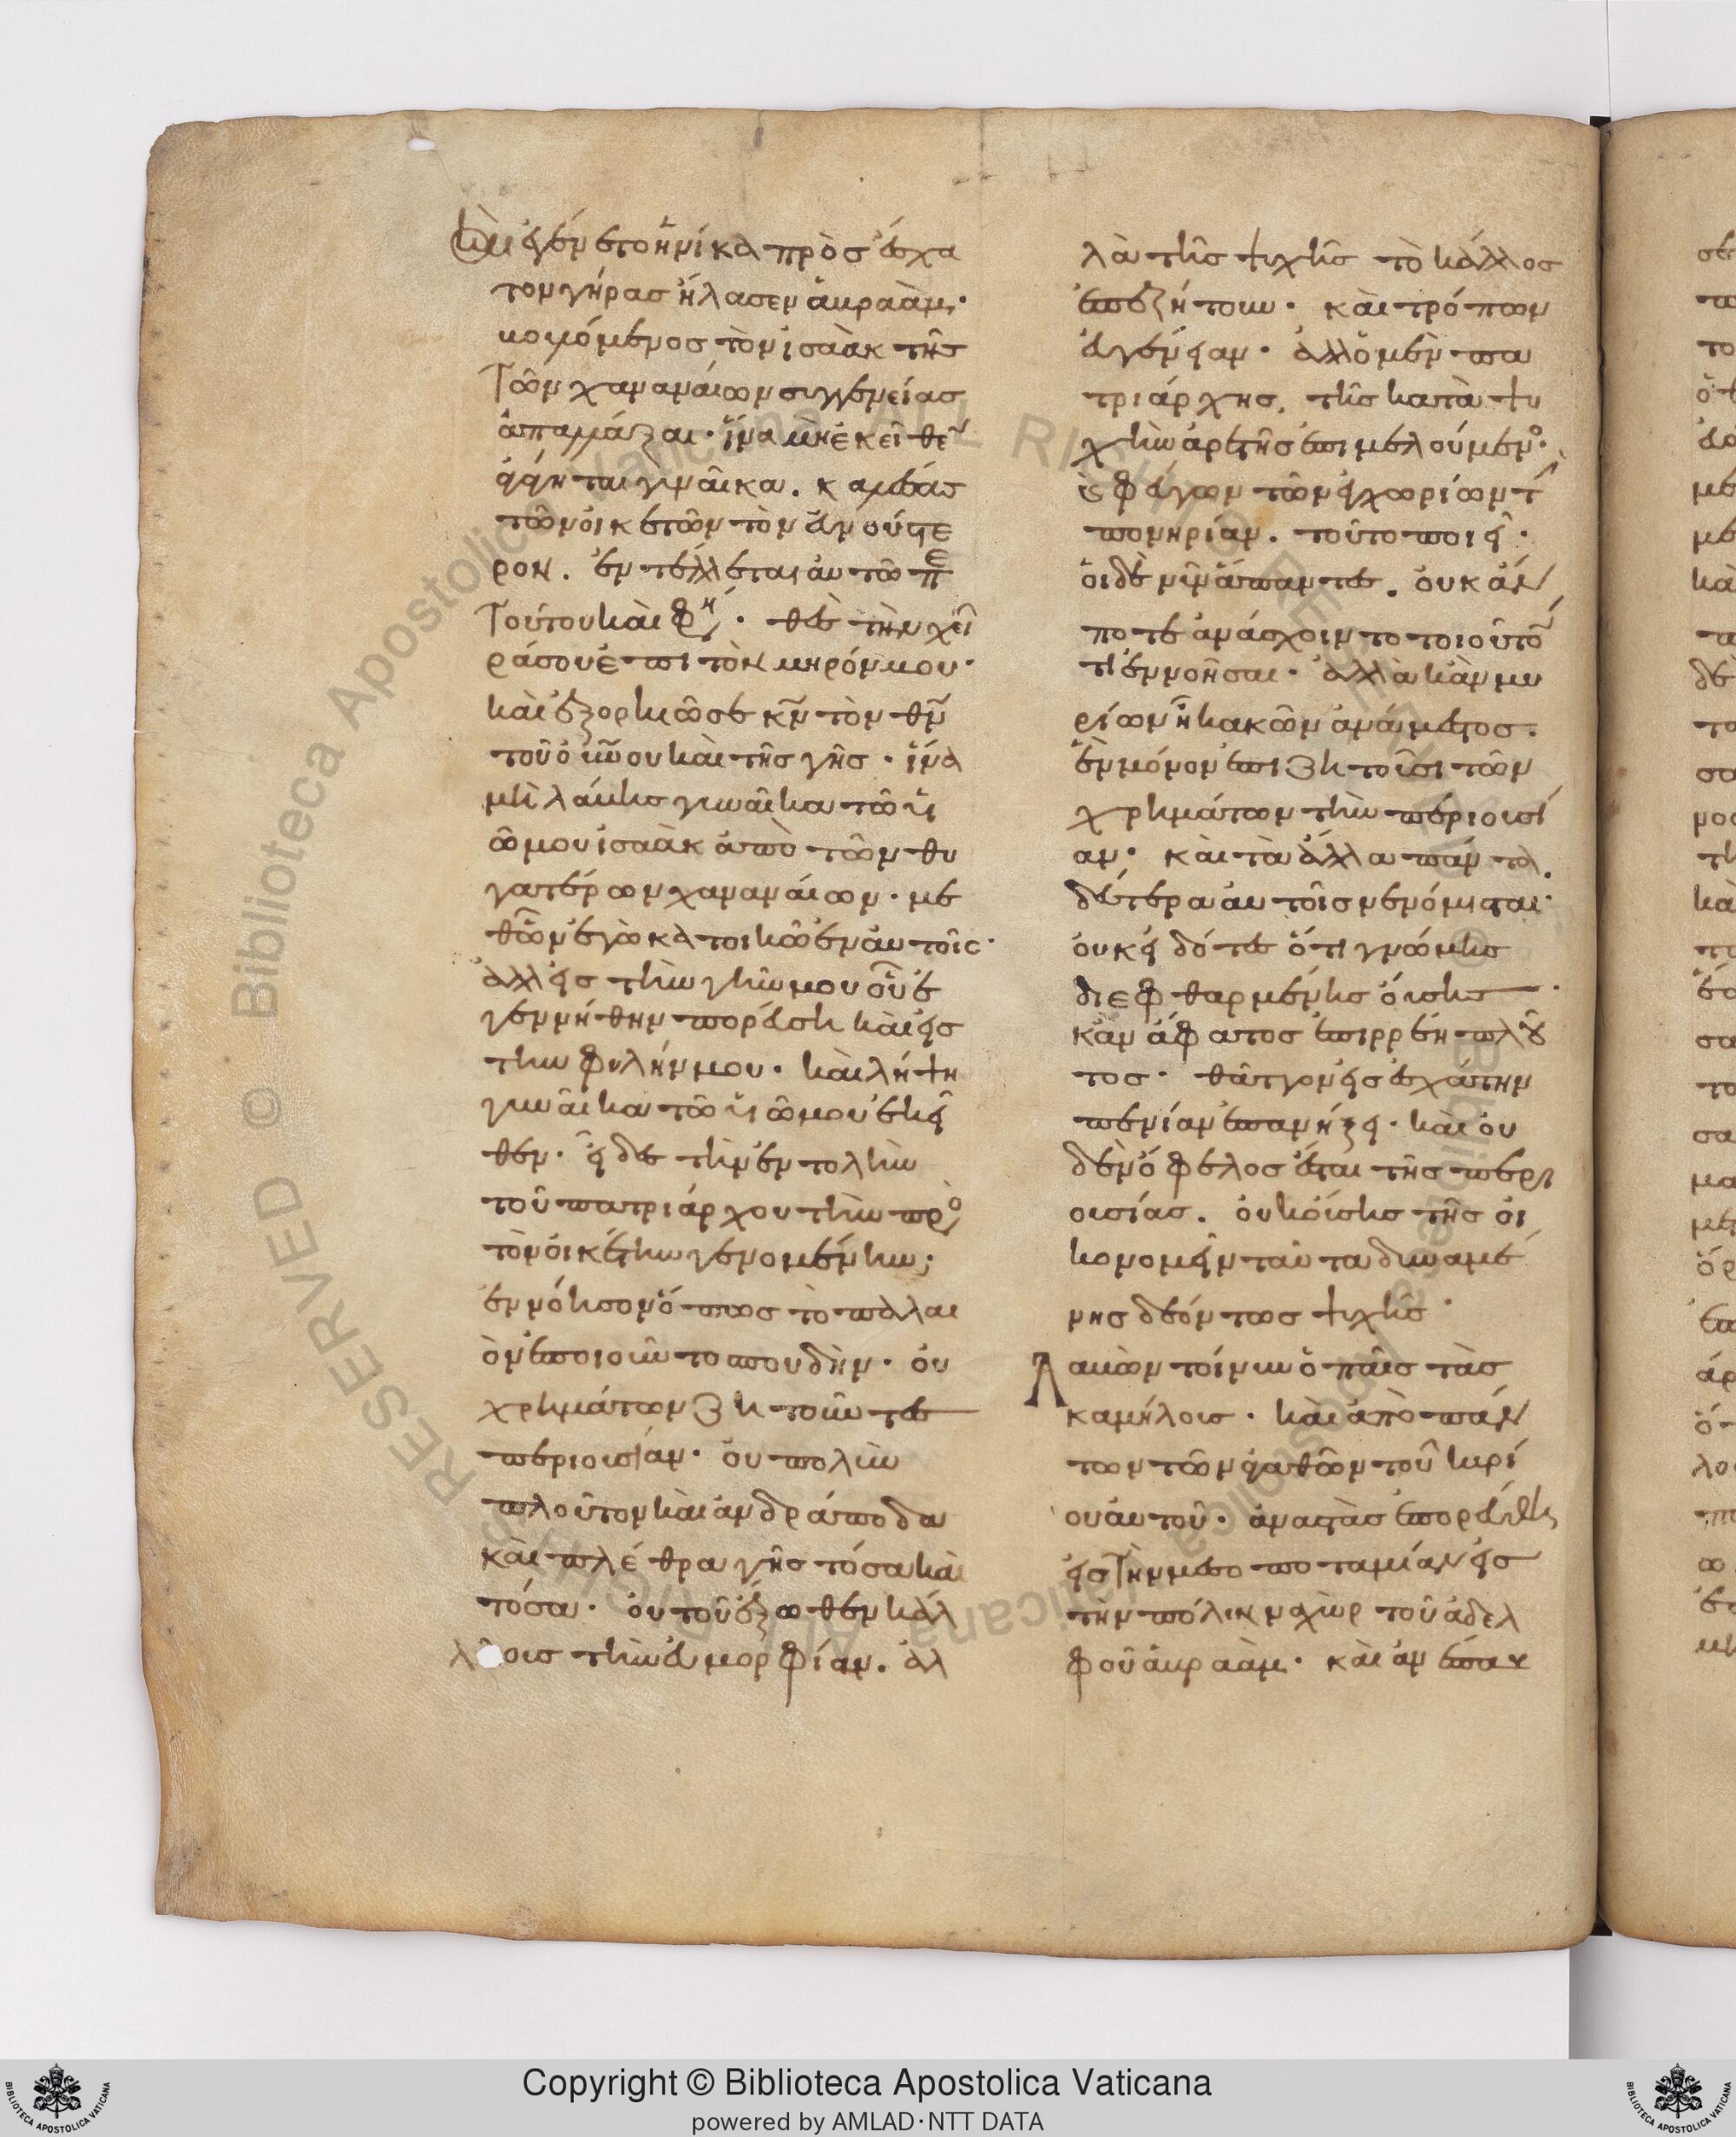 καὶ ἐγένετο ἡνίκα πρὸς ἔσχα
τον γήρας ἤλασεν ἁβραάμ·
βουλόμενος τὸν ἰσαὰκ τῆς
τῶν χαναναίων συγγενείας
ἀπαλλάξαι· ἵνα μὴ ἐκεῖθεν
στήσηται γυναῖκα. καλέσας
τῶν οἰκετῶν τὸν εὐνούστε
ρον. ἐντέλλεται αὐτῶ περὶ
τούτου καὶ φησί· θὲς τὴν χεῖ
ρά σου ἐπὶ τὸν μηρόν μου·
καὶ ἐξορκιῶ σε κν τὸν θν
τοῦ οὐνου καὶ τῆς γῆς· ἵνα
μὴ λάβης γυναῖκα τῶ υἱ
ῶ μου ἰσαὰκ ἀπὸ τῶν θυ
γατέρων χαναναίων· με
θῶν ἐγὼ κατοικῶ ἐν αὐτοῖς·
ἀλλ εἰς τὴν γῆν μου οὗ ἐ
γεννήθην πορεύση καὶ εἰς
τὴν φυλήν μου· καὶ λήψη
γυναῖκα τῶ υἱῶ μου ἐκεῖ
θεν· εἶδες τὴν ἐντολὴν
τοῦ πατριάρχου τὴν πρὸ
τὸν οἰκέτην γενομένην;
ἐννόησον ὅπως τὸ παλαι
ὸν ἐποιοῦντο σπουδὴν· οὐ
χρημάτων ζητοῦντες
περιουσίαν· οὐ πολὺν
πλοῦτον καὶ ἀνδράποδα
καὶ πλέθρα γῆς τόσα καὶ
τόσα· οὐ τοῦ ἔξωθεν κάλ
λους τὴν εὐμορφίαν. ἀλ
λὰ τῆς ψυχῆς τὸ κάλλος
ἐπεζήτουν· καὶ τρόπων
εὐγένειαν· ἀλλ ὁ μὲν πα
τριάρχης, τῆς κατὰ ψυ
χὴν ἀρετῆς ἐπιμελούμενο·
καὶ φεύγων τῶν ἐγχωρίων τὴν
πονηρίαν. τοῦτο ποιεῖ·
οἱ δὲ νῦν ἅπαντες. οὐκ ἄν
ποτε ἀνάσχοιντο τοιοῦτον
τι ἐννοῆσαι· ἀλλὰ κἂν μυ
ρίων ἦ κακῶν ἀνάμεστος.
ἓν μόνον ἐπιζητοῦσι τῶν
χρημάτων τὴν περιουσί
αν· καὶ τὰ ἄλλα πάντα
δεύτερα αὐτοῖς νενόμισται·
οὐκ εἰδότες ὅτι γνώμης
διεφθαρμένης οὔσης·
κἂν ἄφατος ἐπιρρέη πλοῦ
τος· θᾶττον εἰς ἐσχάτην
πενίαν ἐπανήξει· καὶ οὐ
δὲν ὄφελος ἔσται τῆς περι
ουσίας. οὐκ οὔσης τῆς οἰ
κονομεῖν ταῦτα δυναμέ
νης δεόντως ψυχῆς·
Λαβὼν τοίνυν ὁ παῖς τὰς
καμήλους· καὶ ἀπὸ πάν
των τῶν ἀγαθῶν τοῦ κυρί
ου αὐτοῦ· ἀναστὰς ἐπορεύθη
εἰς τὴν μεσοποταμίαν εἰς
τὴν πόλιν ναχὼρ τοῦ ἀδελ
φοῦ ἁβραάμ· καὶ ἀνέπαυ